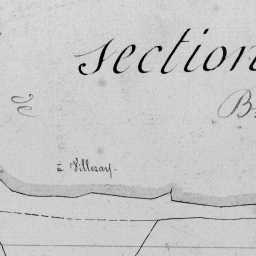 section
B
à Villeray.